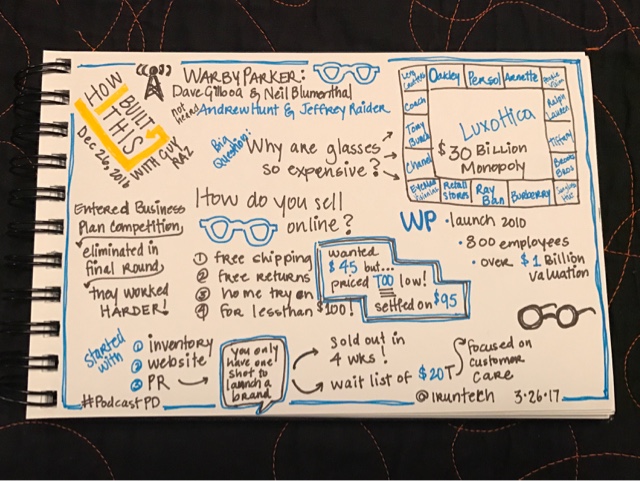 HOW
I
BUILT
THIS
WITH GUY
RAZ
Dec 26, 2016
WARBY PARKER:
Dave Gilboa & Neil Blumenthal
not heard
Andrew Hunt & Jeffrey Raider
Big
Question:
Why are glasses
so expensive?
Oakley
Persol
Arnette
Ralph
Lauren
Tiffany
Brooks
Bros
Burberry
Ray
Ban
Retail
Stores
Chanel
Tory
Burch
Coach
Luxottica
$30 Billion
Monopoly
How do you sell
online?
① free shipping
② free returns
③ home try on
④ for less than $100!
wanted
$45 but...
priced TOO low!
settled on $95
WP • launch 2010
• 800 employees
• over $1 Billion
valuation
Entered Business
Plan competition
eliminated in
final round
they worked
HARDER!
Started
with
① inventory
② website
③ PR
you only
have one
shot to
launch a
brand
Sold out in
4 wks!
wait list of $20T
focused on
customer
care
#PodcastPD
@iruntech 3-26-17